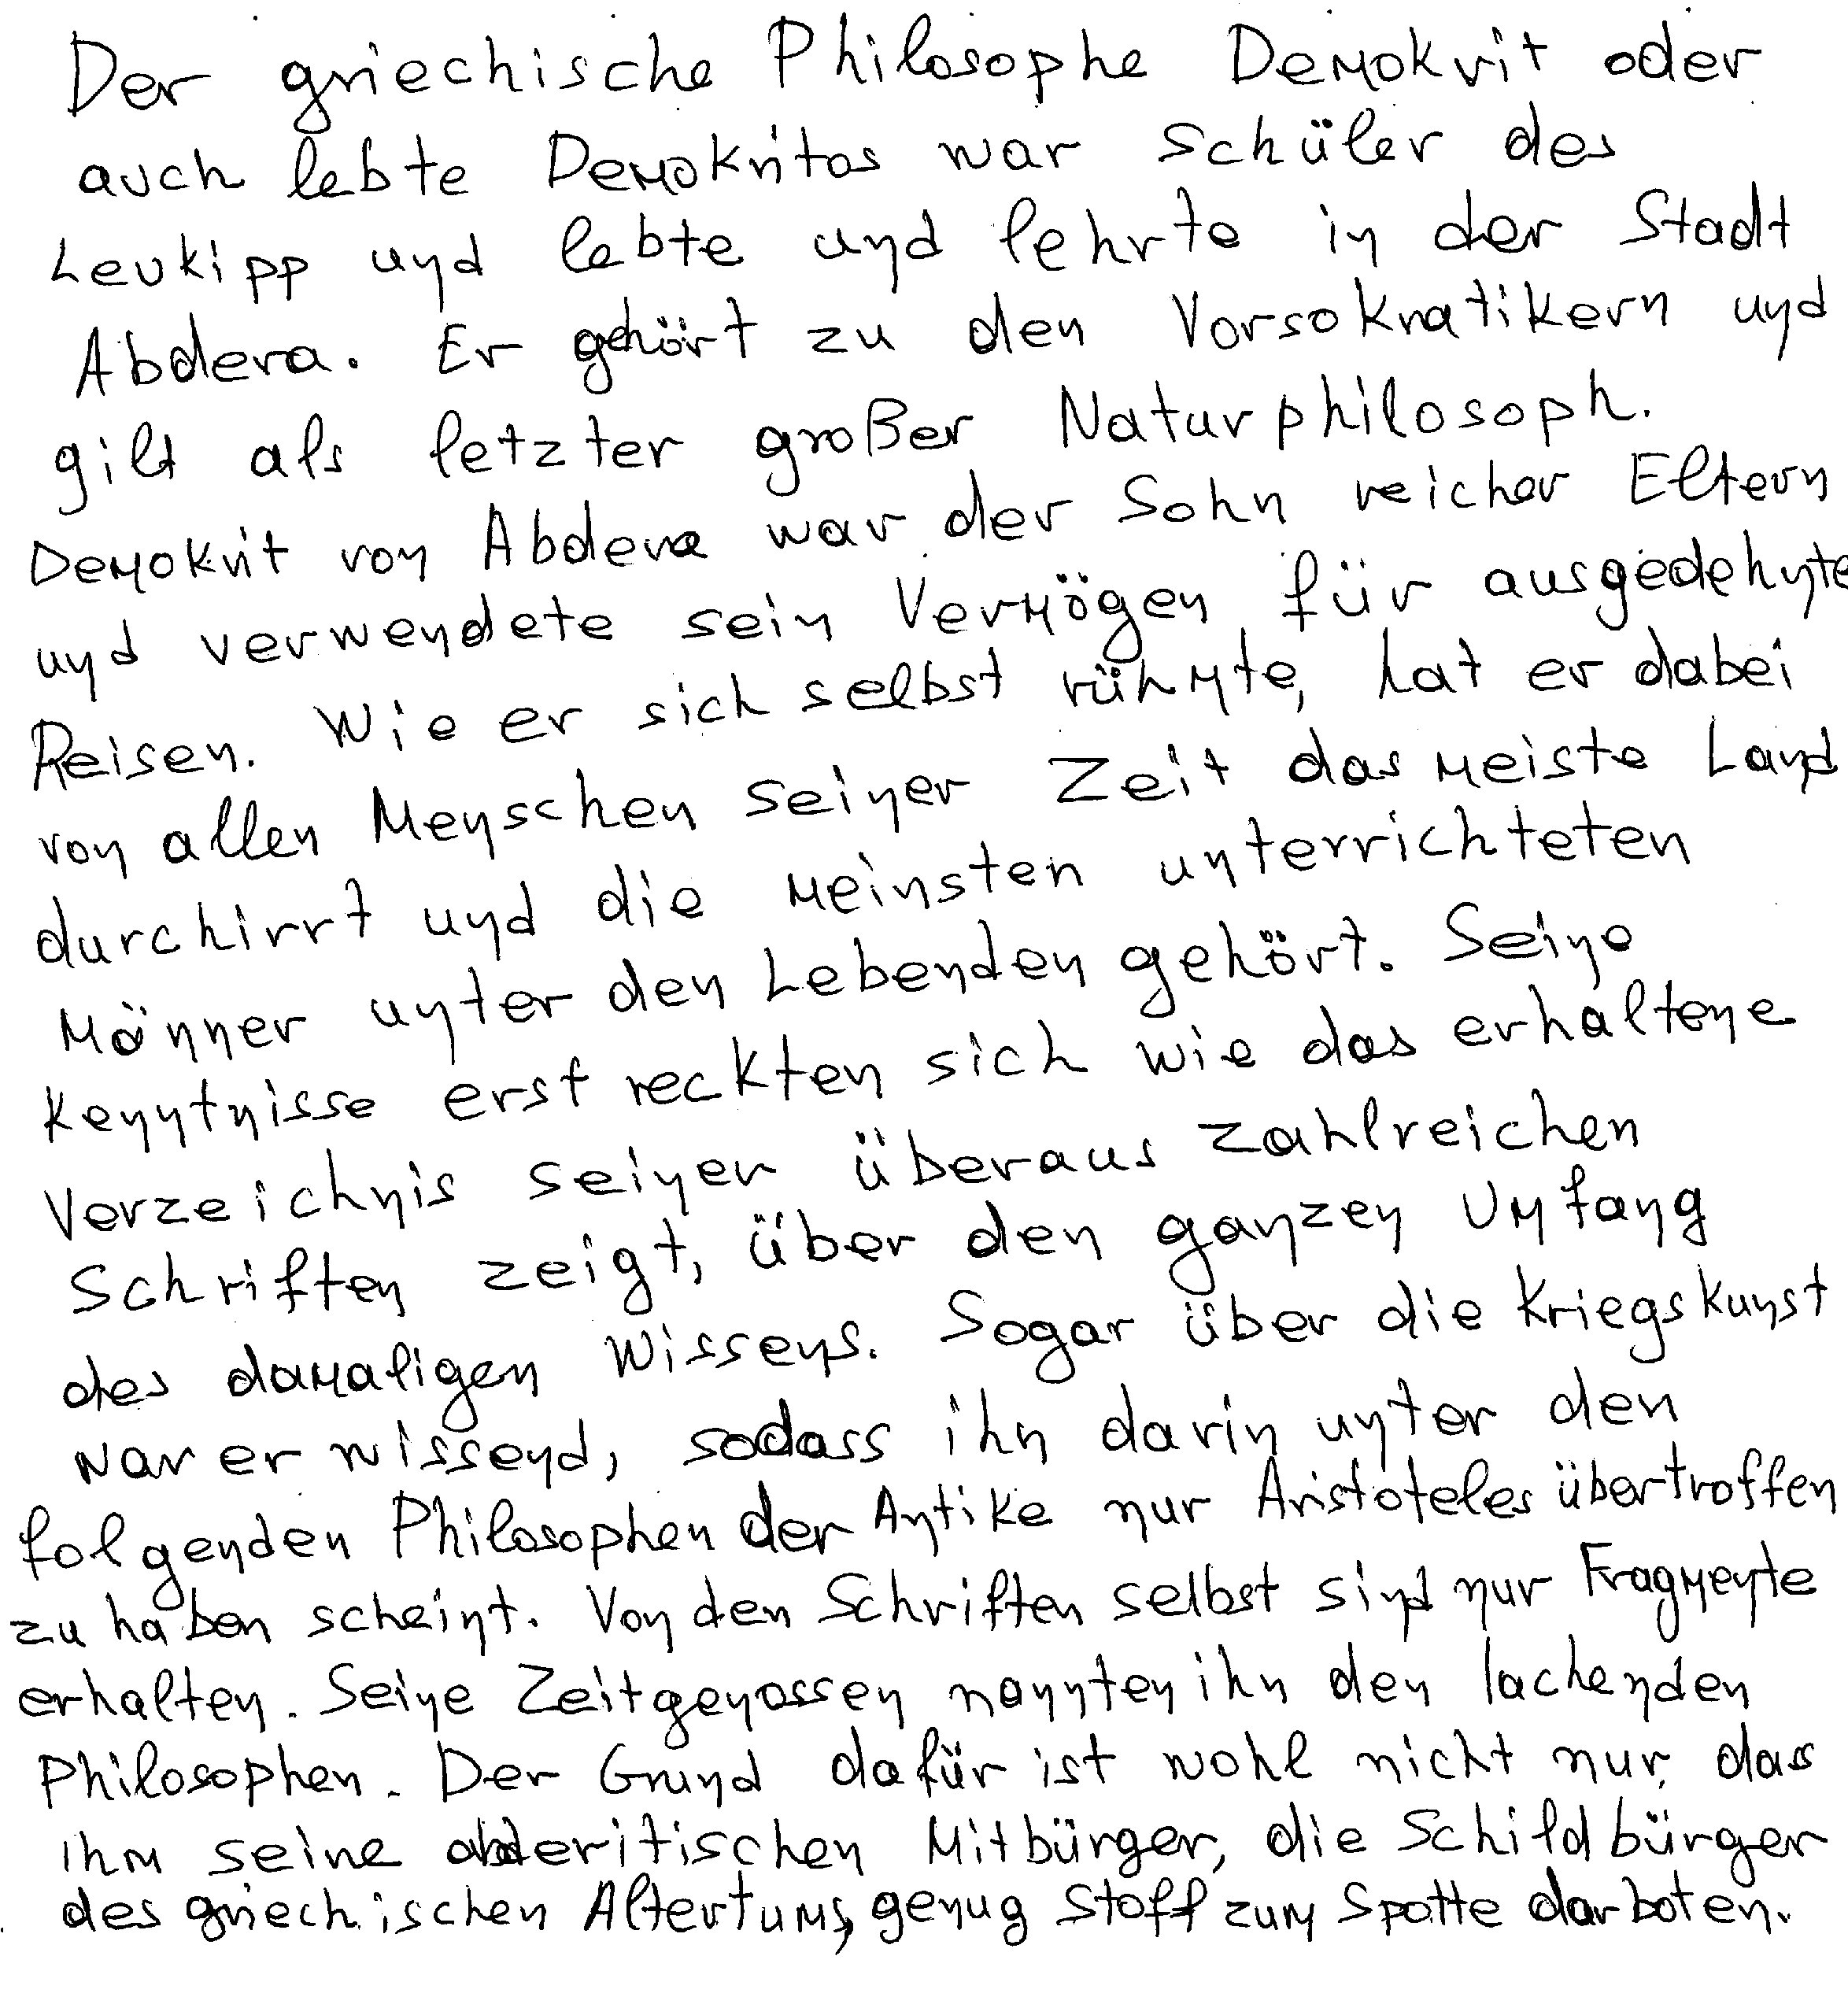 Der griechische Philosophe Demokrit oder
auch lebte Demokritos war Schüler des
Leukipp und lebte und lehrte in der Stadt
Abdera. Er gehört zu den Vorsokratikern und
gilt als letzter großer Naturphilosoph.
Demokrit von Abdera war der Sohn reicher Eltern
und verwendete sein Vermögen für ausgedehnte
Reisen. Wie er sich selbst rühmte, hat er dabei
von allen Menschen seiner Zeit das meiste Land
durchirrt und die meinsten unterrichteten
Männer unter den Lebenden gehört. Seine
Kenntnisse erst reckten sich wie das erhaltene
Verzeichnis seiner überaus zahlreichen
Schriften zeigt, über den ganzen Umfang
des damaligen Wissens. Sogar über die Kriegskunst
war er wissend, sodass ihn darin unter den
folgenden Philosophen der Antike nur Aristoteles übertroffen
zu haben scheint. Von den Schriften selbst sind nur Fragmente
erhalten. Seine Zeitgenossen nannten ihn den lachenden
Philosophen. Der Grund dafür ist wohl nicht nur, das
ihm seine abderitischen Mitbürger, die Schildbürger
des griechischen Altertums, genug Stoff zum Spotte darboten.